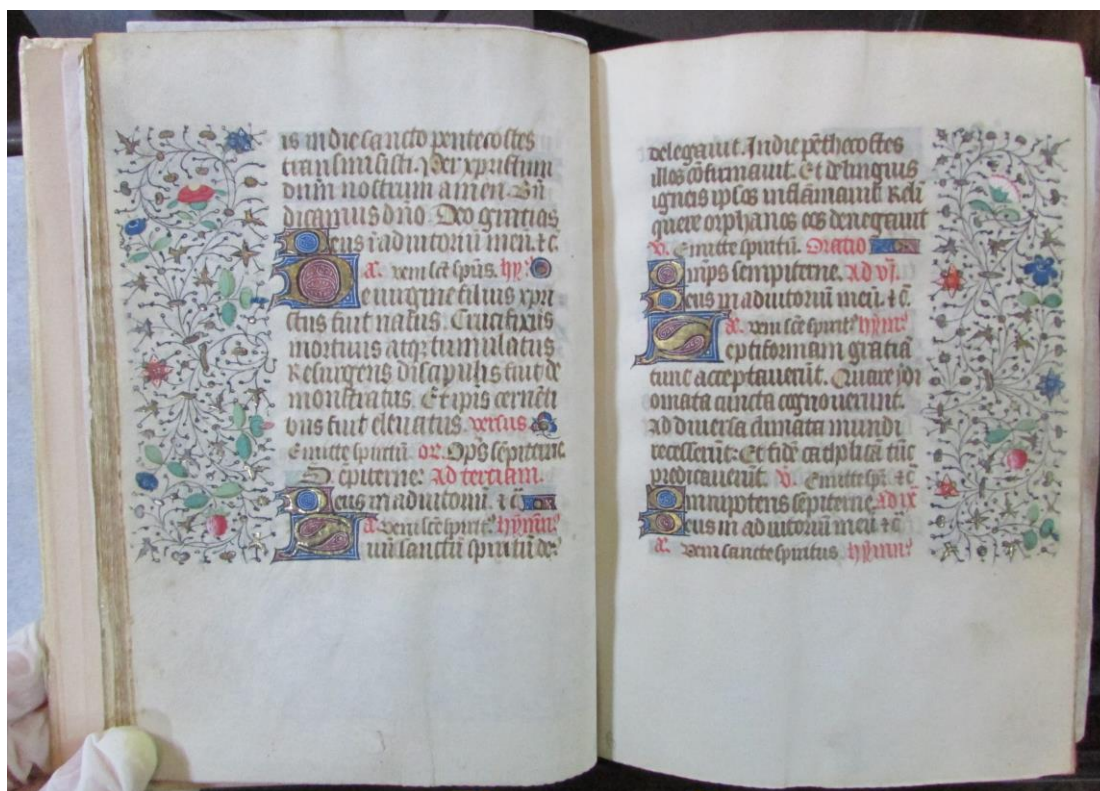 is in die sancto pentecostes
transmisisti. Per xpristum
dnm̄ nostrum amen. Bn̄
dicamus dn̄o. Deo gratias
Deus ī adiutoriū meū. ⁊ c.
a. veni scē spūs. hy:
De virgine filius xpri
stus fuit natus. Crucifixus
mortuus atq; tumulatus
Resurgens discipulis fuit de
monstratus. Et ipis cernēti
bus fuit elevatus. versus
Emitte spiritū or. Op̄s sēpiterne.
Ad terciam.
Deus in adiutoriū. ⁊ c̄
a. veni scē spirit9. hymn9
Suū sanctū spiritū de9
delegavit. In die pēthecostes
illos cōfirmavit. Et de linguis
igneis ipsos inflāmavit Reli
quere orphanos eos denegavit
v. Emitte spiritū. Oratio
Omp̄s sempiterne. Ad vj.
Deus in adiutoriū meū. ⁊ c̄.
a. veni scē spirit9 hymn9
Septiformam gratiā
tunc acceptaverūt. Quare ydi
omata cuncta cognoverunt.
Ad diversa climata mundi
recesserūt: Et fidē catholicā tūc
predicaverūt. v. Emitte spū ⁊ c̄
Omnip̄tens sēpiterne. Ad ix
Deus in adiutoriū meū ⁊ c̄
a. veni sancte spiritus. hymn9